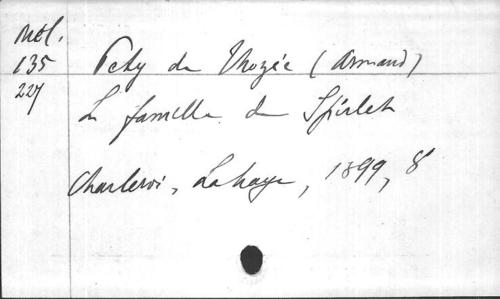 Mél.
135
227
Pety de Thozée (Armand)
La famille de Spirlet
Charleroi, Lahaye, 1899, 8°